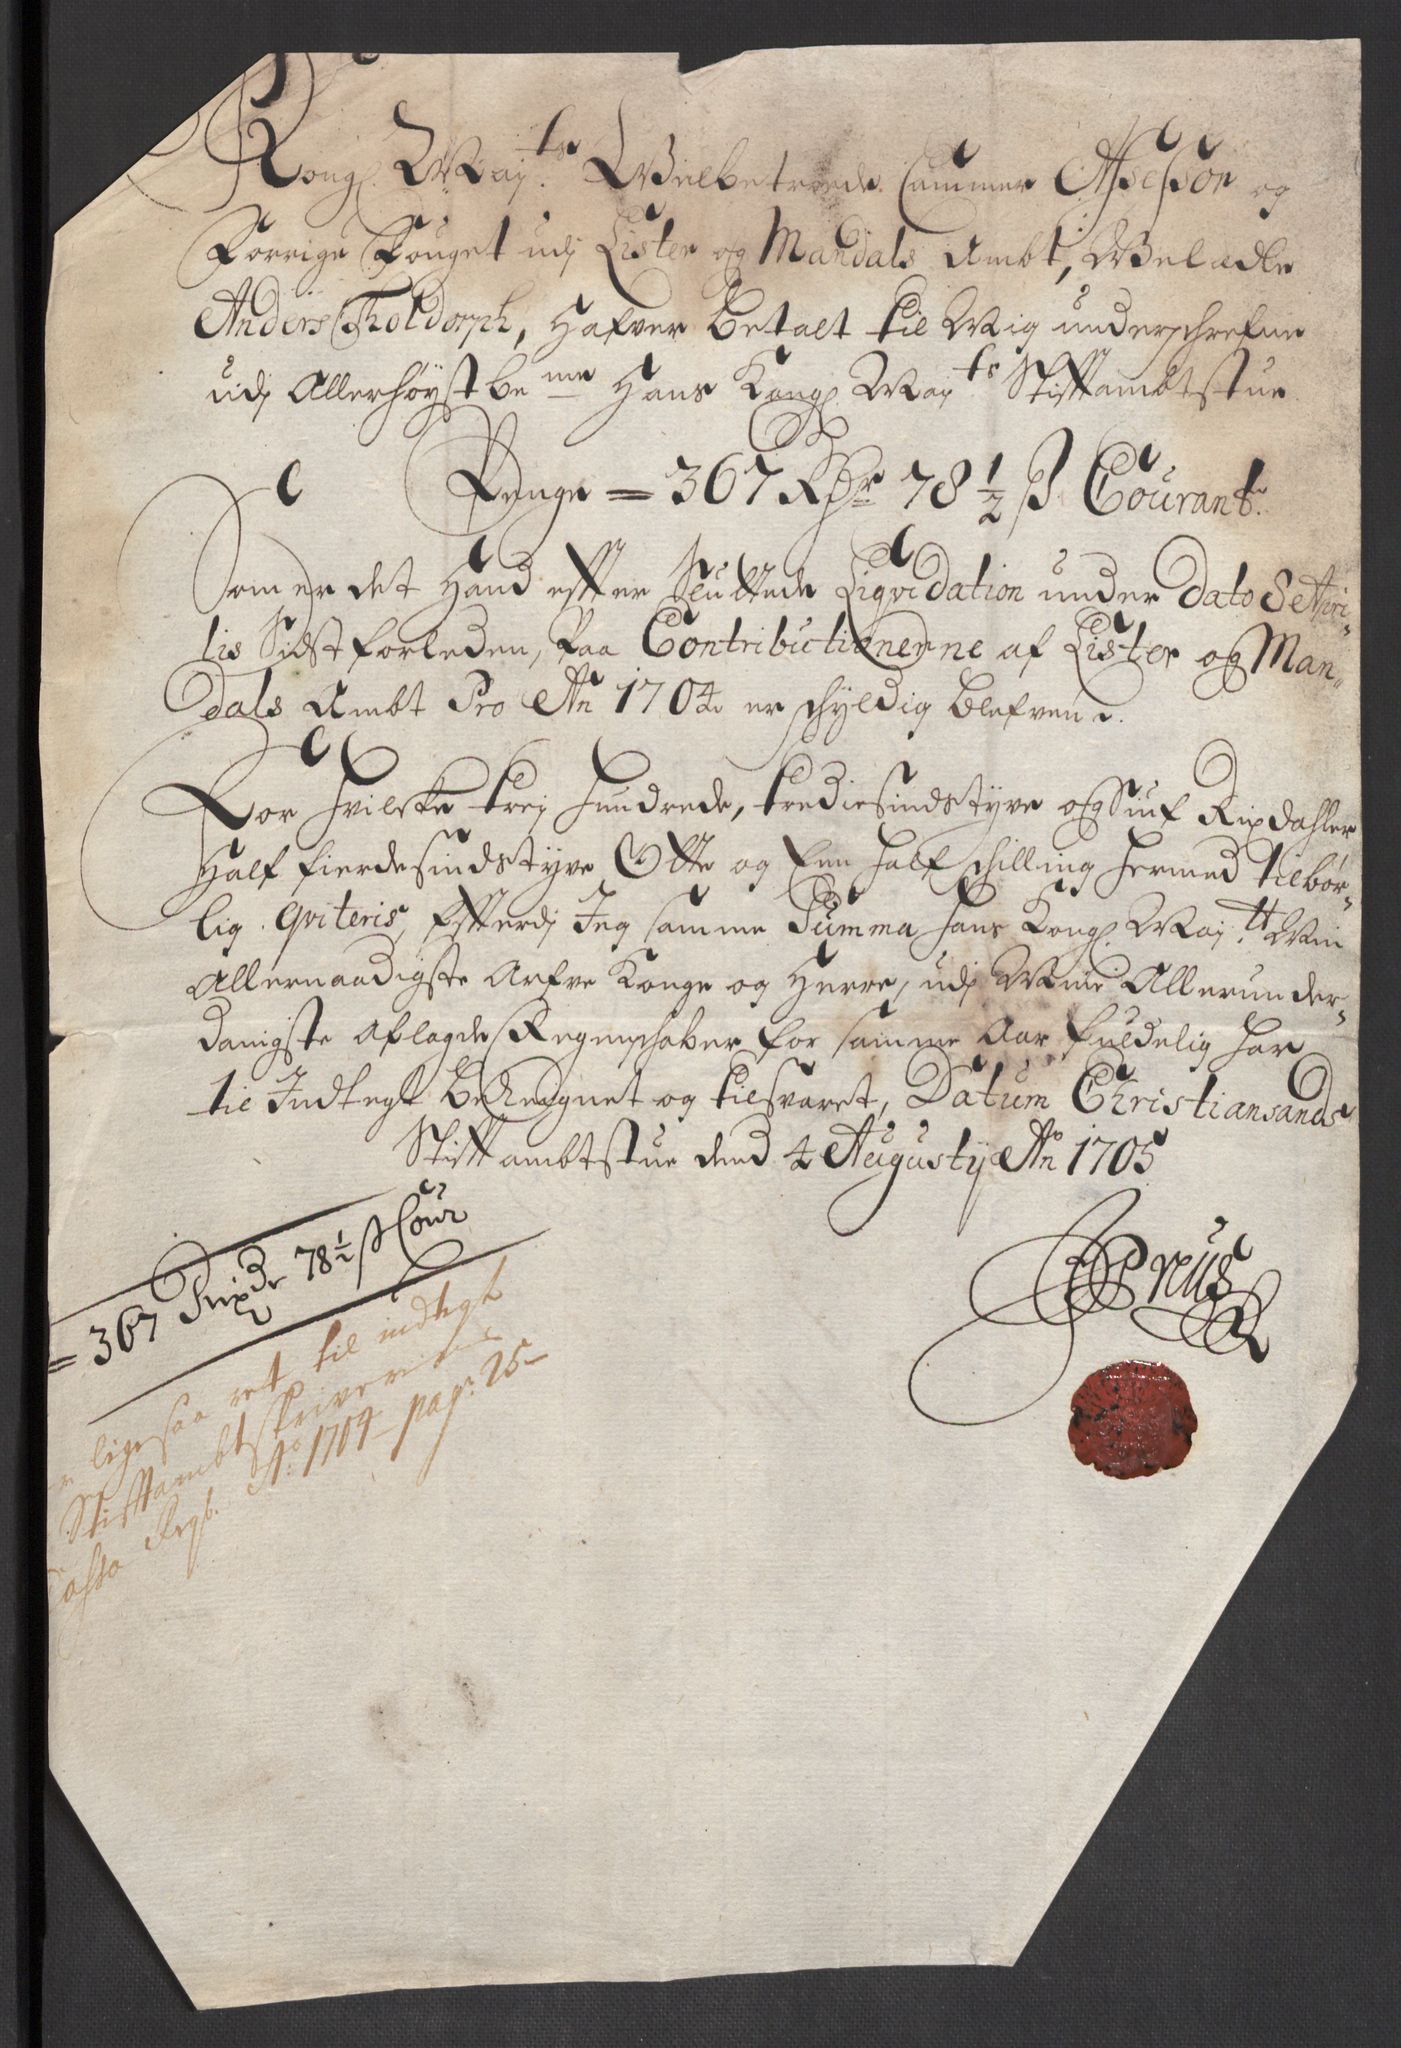 Kongl. May.ts Welbetroede Cammer Assessor og
Forrige Fouget udj Lister og Mandals Ambt, Wel ædle
Anders Tholdorph, Hafver betalt til Mig underschrefne
udj Allerhøyst be.me Hans Kongl. May.ts Stiftambtstue
Penge = 367 Rdr 78 1/2 ß Courant.
Som er det Hand effter Sluttede Liqvidation under dato 8 Apri-
lis Sidst forleden, paa Contributionerne af Lister og Man-
dals Ambt Pro Ao 1704 er schyldig blefven.
For hvilcke trej hundrede, trediesindstyve og Siuf Rixdahler
Half fierdesindstyve Otte og Een half schilling hermed tilbør-
lig qviteris, Effterdj Jeg samme Summa hans Kongl. May.tt Min
Allernaadigste Arfve Konge og Herre, udj Mine Allerunder-
danigste aflagde Regenschaber for samme Aar fuldelig har
til Indtegt beregnet og tilsvaret, Datum Christiansands
Stiftambtstue dend 4 Augustij Ao 1705
= 367 Rixdr 78 1/2 ß Cour
ligesaa ret til indtegt
Stiftambtskriverens
Cassa Regb. Ao 1704 pag: 25